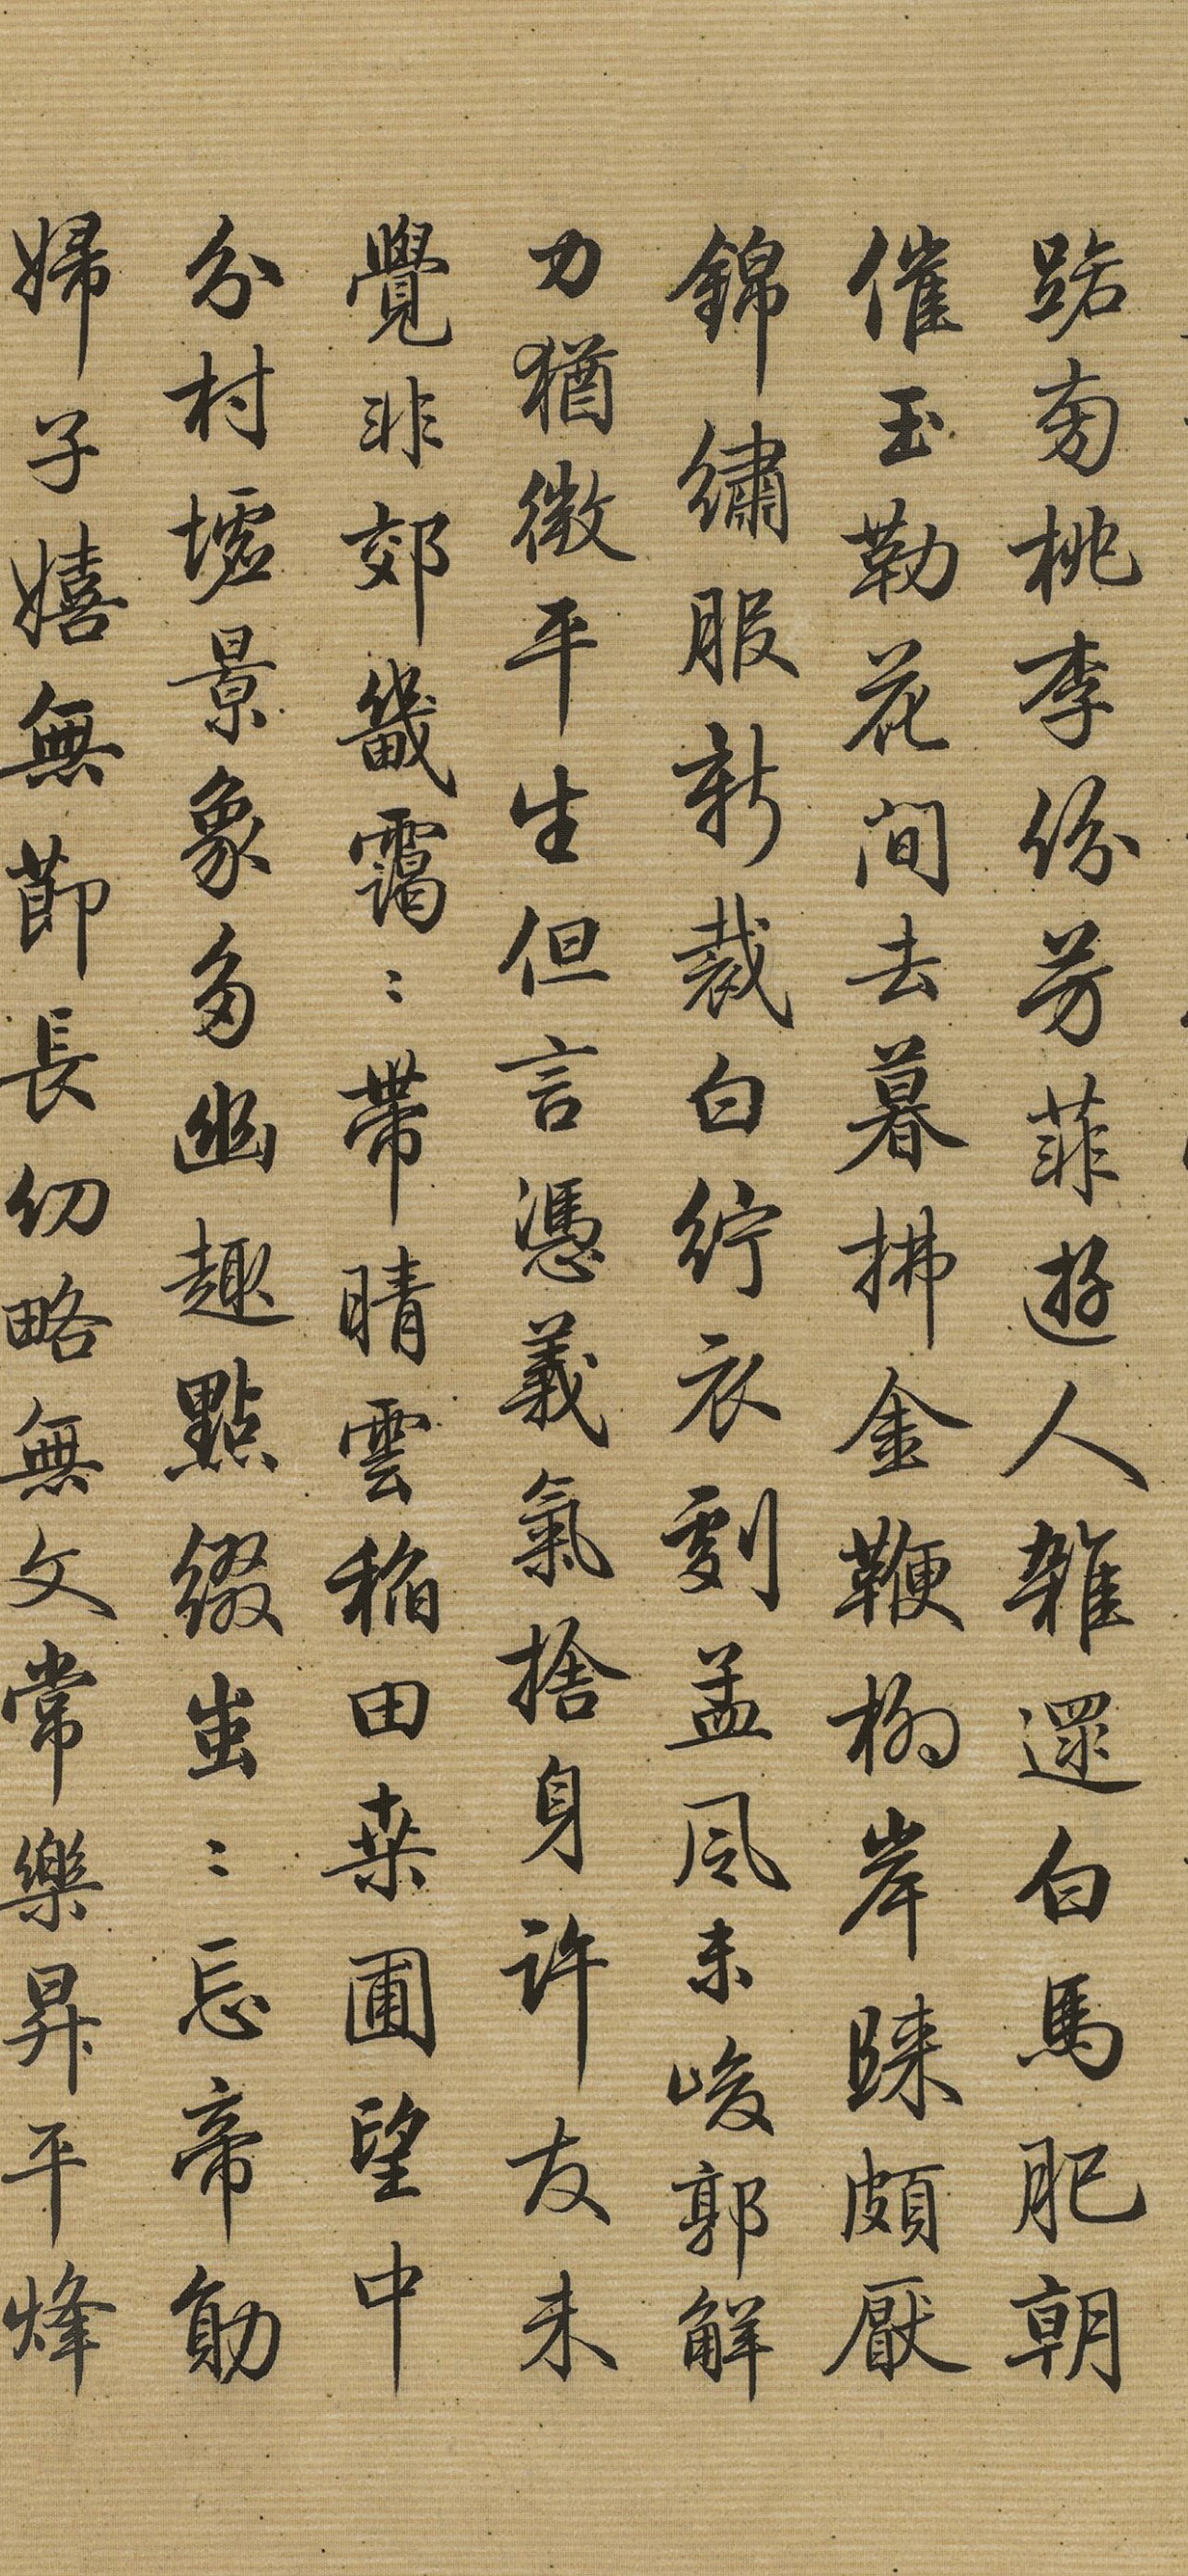 踞匊桃李份芳菲遊人雜還白馬肥朝
催玉勒花間去暮拂金鞭柳岸睐頗厭
錦繡服新裁白紵衣劇孟風未峻郭解
力猶微平生但言憑義氣捨身許友未
覺非郊畿靄:帶晴雲稻田桑圃望中
分村墟景象多幽趣點綴蚩:忘帝勛
婦子嬉無節長幼略無文常樂昇平烽